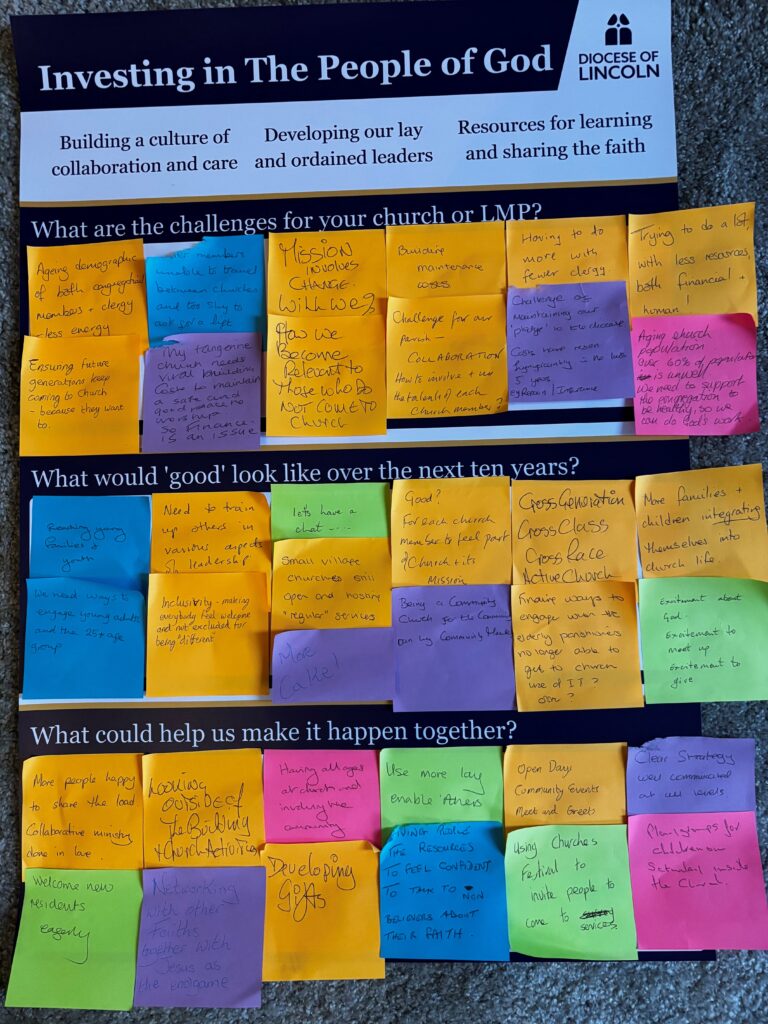 Investing in The People of God
DIOCESE OF
LINCOLN
Building a culture of
collaboration and care
Developing our lay
and ordained leaders
Resources for learning
and sharing the faith
What are the challenges for your church or LMP?
Ageing demographic
of both congregational
members + clergy
- less energy
members
unable to travel
between churches
and too shy to
ask for a lift
MISSION
INVOLVES
CHANGE.
WILL WE?
Building
maintenance
costs
Having to do
more with
fewer clergy.
Trying to do a lot,
with less resources,
both financial +
human!
Ensuring future
generations keep
coming to Church
- because they want
to.
My
church needs
vital building
costs to maintain
a safe and
good place to
worship
So Finance
is an issue
How we
Become
Relevant to
Those who do
NOT COME TO
CHURCH
Challenge for our
parish -
COLLABORATION
How to involve + use
the talents of each
Church member?
Challenge of
Maintaining our
'pledge' to the diocese
Costs have risen
significantly in the last
5 years
eg Repairs / Insurance
Aging church
population
Over 60% of population
is unwell
We need to support
the congregation to
be healthy, so we
can do God's work.
What would 'good' look like over the next ten years?
Reaching young
families &
youth
Need to train
up others in
various aspects
of leadership
Let's have a
chat ....
Good?
For each church
member to feel part
of Church + its
Mission
Cross Generation
Cross Class
Cross Race
Active Church
More families +
children integrating
themselves into
church life.
We need ways to
engage young adults
and the 25+ age
group
Inclusivity - making
everybody feel welcome
and not excluded for
being "different"
Small village
churches still
open and hosting
"regular" services
More
Cake!
Being a Community
Church for the Community
run by Community
Finding ways to
engage when the
elderly parishioners
no longer able to
get to church
use of IT?
other?
Excitement about
God.
Excitement to
meet up
Excitement to
give
What could help us make it happen together?
More people happy
to share the load
Collaborative ministry
done in love.
Looking
outside of
The Building
& Church Activities
Having all ages
at church and
involving the
community
Use more lay
enable others
Open Days
Community Events
Meet and Greets
Clear Strategy
well communicated
at all levels
Welcome new
residents
eagerly
Networking
with other
faiths
together with
Jesus as
the endgame
Developing
Gifts
GIVING PEOPLE
THE RESOURCES
TO FEEL CONFIDENT
TO TALK TO NON
BELIEVERS ABOUT
THEIR FAITH.
Using Churches
Festival to
invite people to
come to
services
Playgroups for
children on
Saturday inside
the Church.